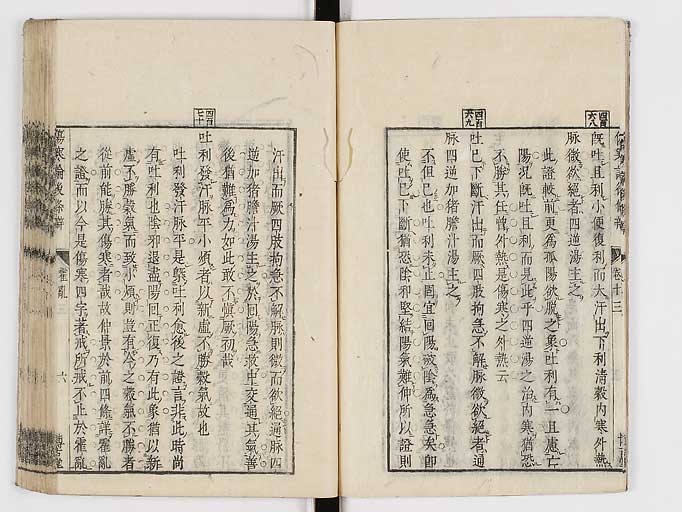 四百六八
既吐且利小便復利而大汗出下利清穀内寒外熱
脉微欲絕者四逆湯主之
此證較前更爲孤陽欲脱之象吐利有一且慮亡
陽况既吐且利而見此乎四逆湯之治内寒猶恐
不勝其任曾外熱是傷寒之外熱云
四百六九
吐已下斷汗出而厥四肢拘急不解脉微欲絕者通
脉四逆加猪膽汁湯主之
不但已也吐利未止固宜回陽破陰爲急急矣卽
使吐已下斷猶恐陰邪堅結陽氣難伸所以證則
卷十三
汗出而厥四肢拘急不解脉則微而欲絕通脉四
逆加猪膽汁湯主之於回陽急救中交通其氣善
後猶難爲力如此敢不愼厥初哉
四百七十
吐利發汗脉平小煩者以新虛不勝穀氣故也
吐利發汗脉平是旣吐利愈後之證言非此時尚
有吐利也陰邪退盡陽回正復乃有此象猶以新
虛不勝穀氣而致小煩則豈有今之穀氣不勝者
從前能勝其傷寒者哉故仲景於前四條詳霍亂
之證而以今是傷寒四字著戒所戒不止於霍亂
傷寒論後條辨
霍亂
六